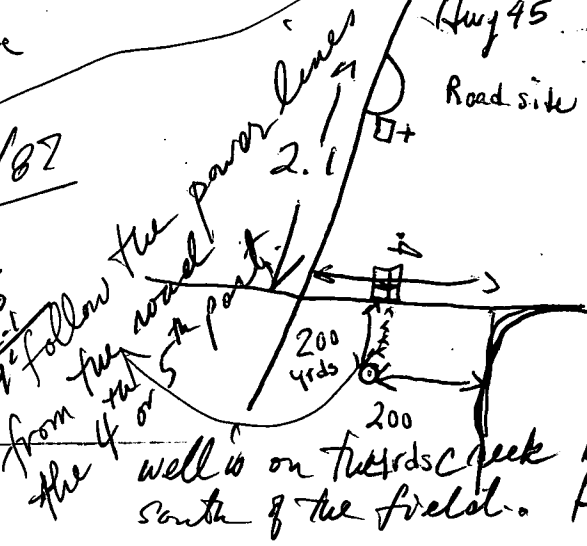 Hwy 45
Road site
/87
2.1
Follow the power lines
from the road
the 4th or 5th part
.4
200
yrds
200
well is on the creek
south of the field.